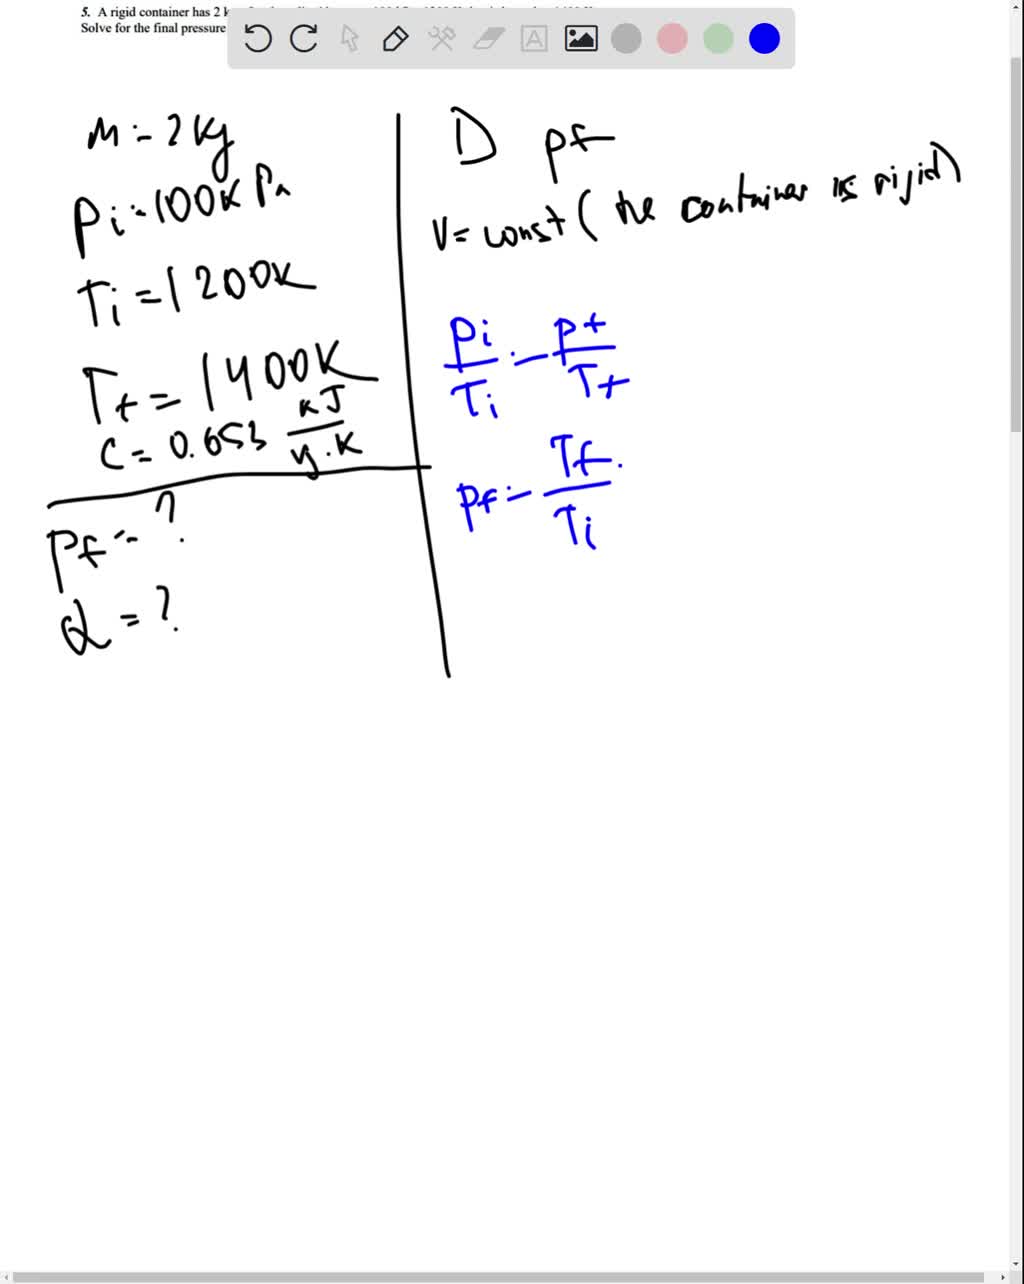 5. A rigid container has 2 k
Solve for the final pressure
m = 2 kg
Pi = 100 K Pa
Ti = 1200K
Tf = 1400K
C = 0.653 KJ / kg.K
Pf = ?
Q = ?
1) pf
V = const (the container is rigid)
Pi / Ti = Pf / Tf
Pf = Tf. / Ti